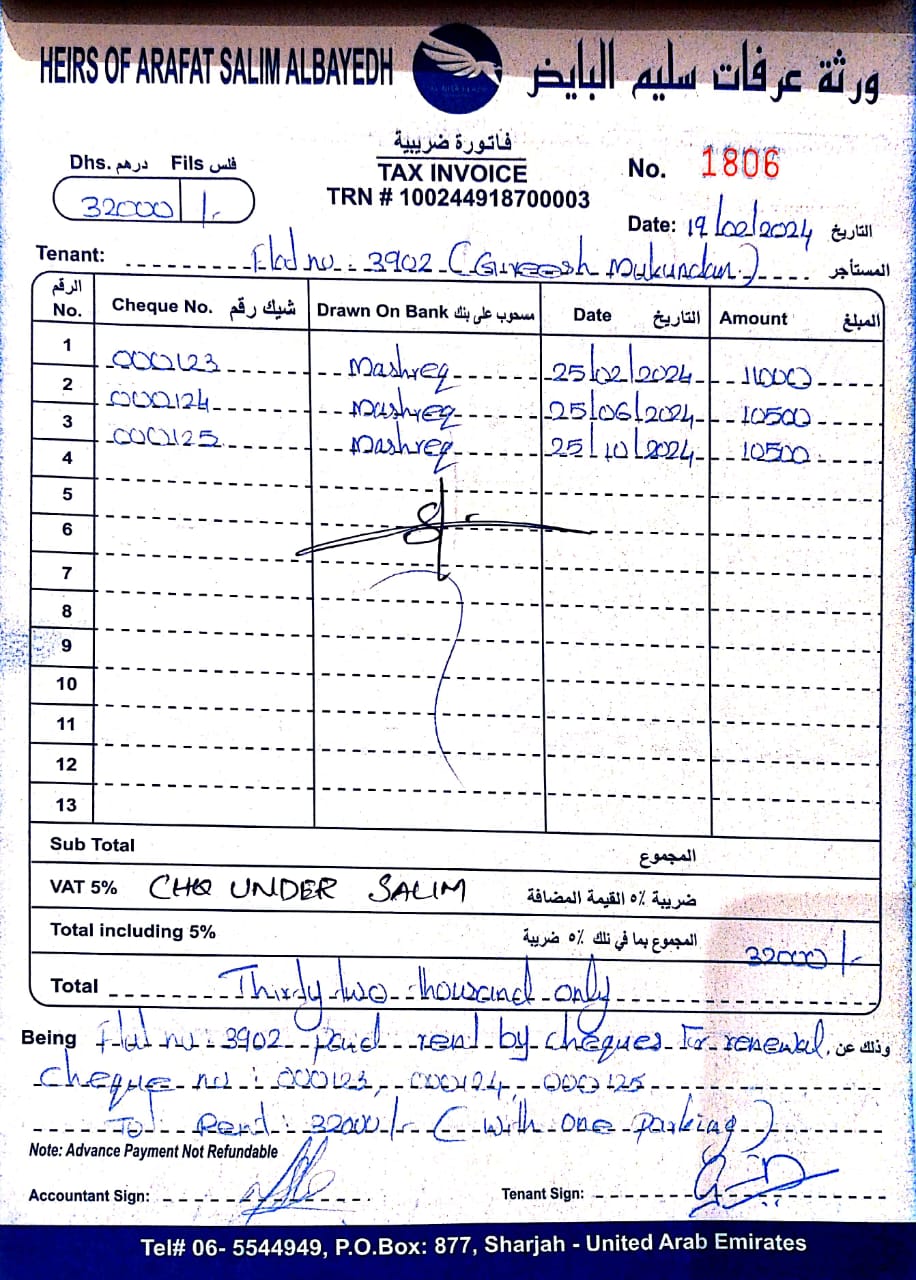 HEIRS OF ARAFAT SALIM ALBAYEDH ورثة عرفات سليم البايض
فاتورة ضريبية
Dhs. درهم Fils فلس
TAX INVOICE
No. 1806
TRN # 100244918700003
32000 /-
Date: 19/02/2024 التاريخ
Tenant: Flat no : 3902 (Gireesh Mukundan) المستأجر
الرقم No. Cheque No. شيك رقم Drawn On Bank مسحوب على بنك Date التاريخ Amount المبلغ
1 000123 Mashreq 25/02/2024 11000
2 000124 Mashreq 25/06/2024 10500
3 000125 Mashreq 25/10/2024 10500
4
5
6
7
8
9
10
11
12
13
Sub Total المجموع
VAT 5% CHQ UNDER SALIM ضريبة ٥٪ القيمة المضافة
Total including 5% المجموع بما في تلك ٥٪ ضريبة 32000/-
Total Thirty two thousand only
Being Flat no : 3902 Paid rent by cheques For renewal. وذلك عن
cheque no : 000123, 000124, 000125
Rent : 32000/- (with one parking)
Note: Advance Payment Not Refundable
Accountant Sign: Tenant Sign:
Tel# 06- 5544949, P.O.Box: 877, Sharjah - United Arab Emirates